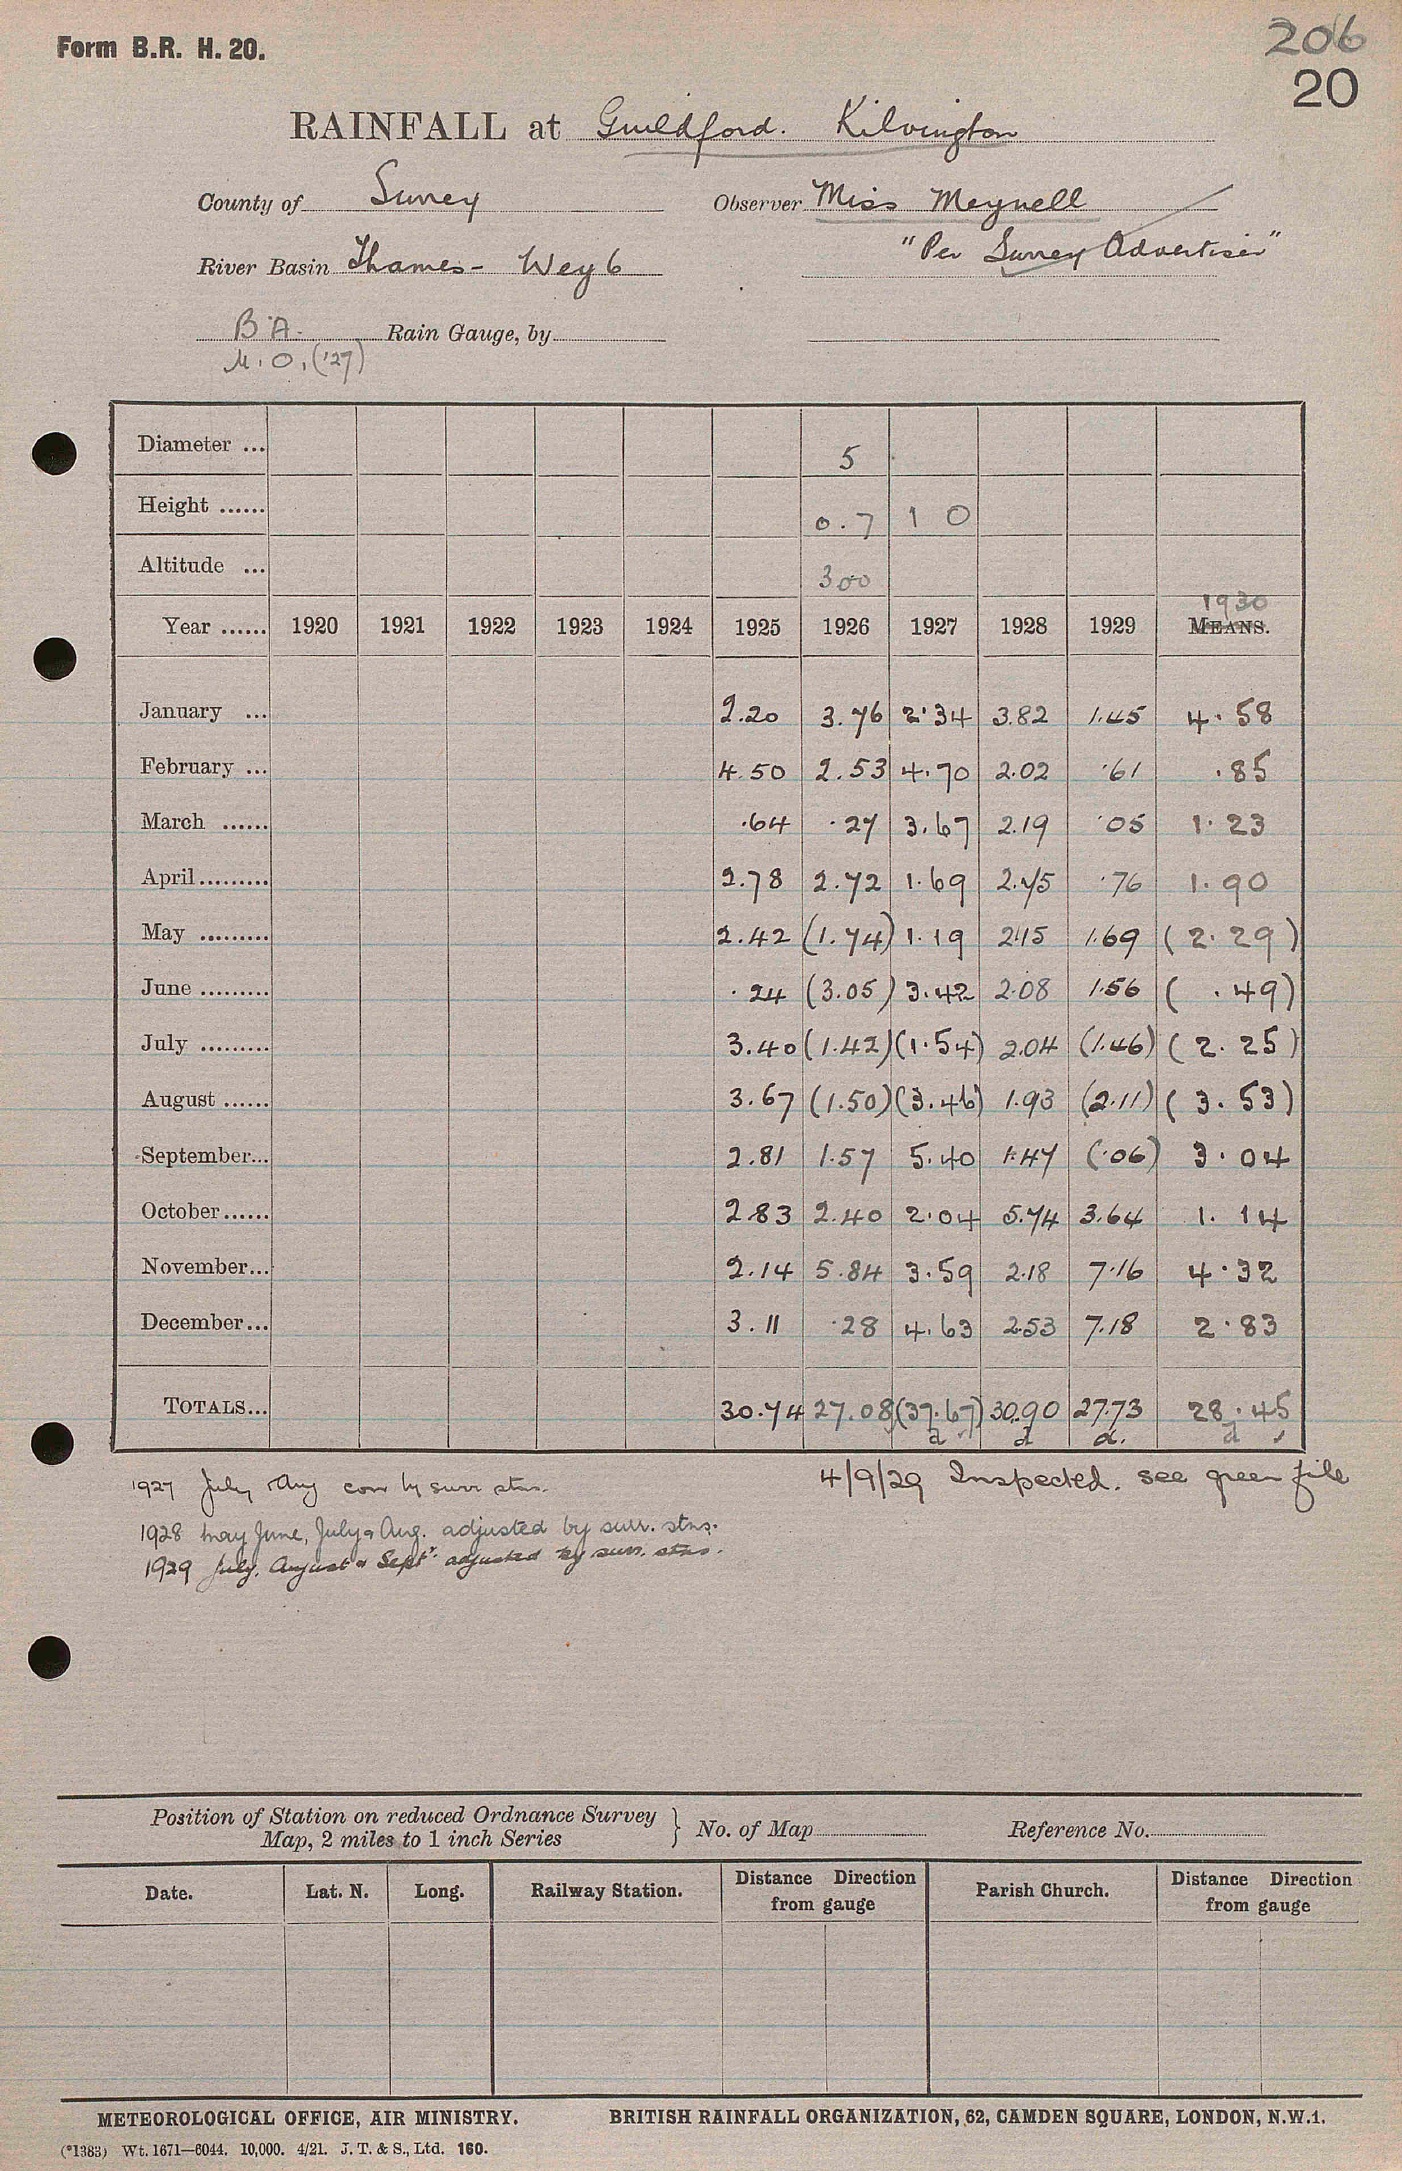 Form B.R. H. 20.
206
20
RAINFALL at Guildford. Kilvington
County of Surrey Observer Miss Meynell
River Basin Thames - Wey 6 "Per Surrey Advertiser"
B.A. Rain Gauge, by
M.O. ('27)
Diameter ... 5
Height ...... 0.7 1 0
Altitude ... 300
1930
Year ...... 1920 1921 1922 1923 1924 1925 1926 1927 1928 1929 MEANS.
January ... 2.20 3.76 2.34 3.82 1.45 4.58
February ... 4.50 2.53 4.70 2.02 .61 .85
March ...... .64 .27 3.67 2.19 .05 1.23
April ......... 2.78 2.72 1.69 2.75 .76 1.90
May ......... 2.42 (1.74) 1.19 2.15 1.69 (2.29)
June ......... .24 (3.05) 3.42 2.08 1.56 (.49)
July ......... 3.40 (1.42) (1.54) 2.04 (1.46) (2.25)
August ...... 3.67 (1.50) (3.46) 1.93 (2.11) (3.53)
September... 2.81 1.57 5.40 1.47 (.06) 3.04
October...... 2.83 2.40 2.04 5.74 3.64 1.14
November... 2.14 5.84 3.59 2.18 7.16 4.32
December... 3.11 .28 4.63 2.53 7.18 2.83
TOTALS... 30.74 27.08 (37.67) 30.90 27.73 28.45
a d d. d
1927 July Aug corr by surr stns. 4/9/29 Inspected. see green file
1928 May June, July & Aug. adjusted by surr. stns.
1929 July, August & Sept. adjusted by surr. stns.
Position of Station on reduced Ordnance Survey
Map, 2 miles to 1 inch Series } No. of Map Reference No.
Date. Lat. N. Long. Railway Station. Distance Direction from gauge Parish Church. Distance Direction from gauge
METEOROLOGICAL OFFICE, AIR MINISTRY. BRITISH RAINFALL ORGANIZATION, 62, CAMDEN SQUARE, LONDON, N.W.1.
(*1383) Wt. 1671—6044. 10,000. 4/21. J. T. & S., Ltd. 160.